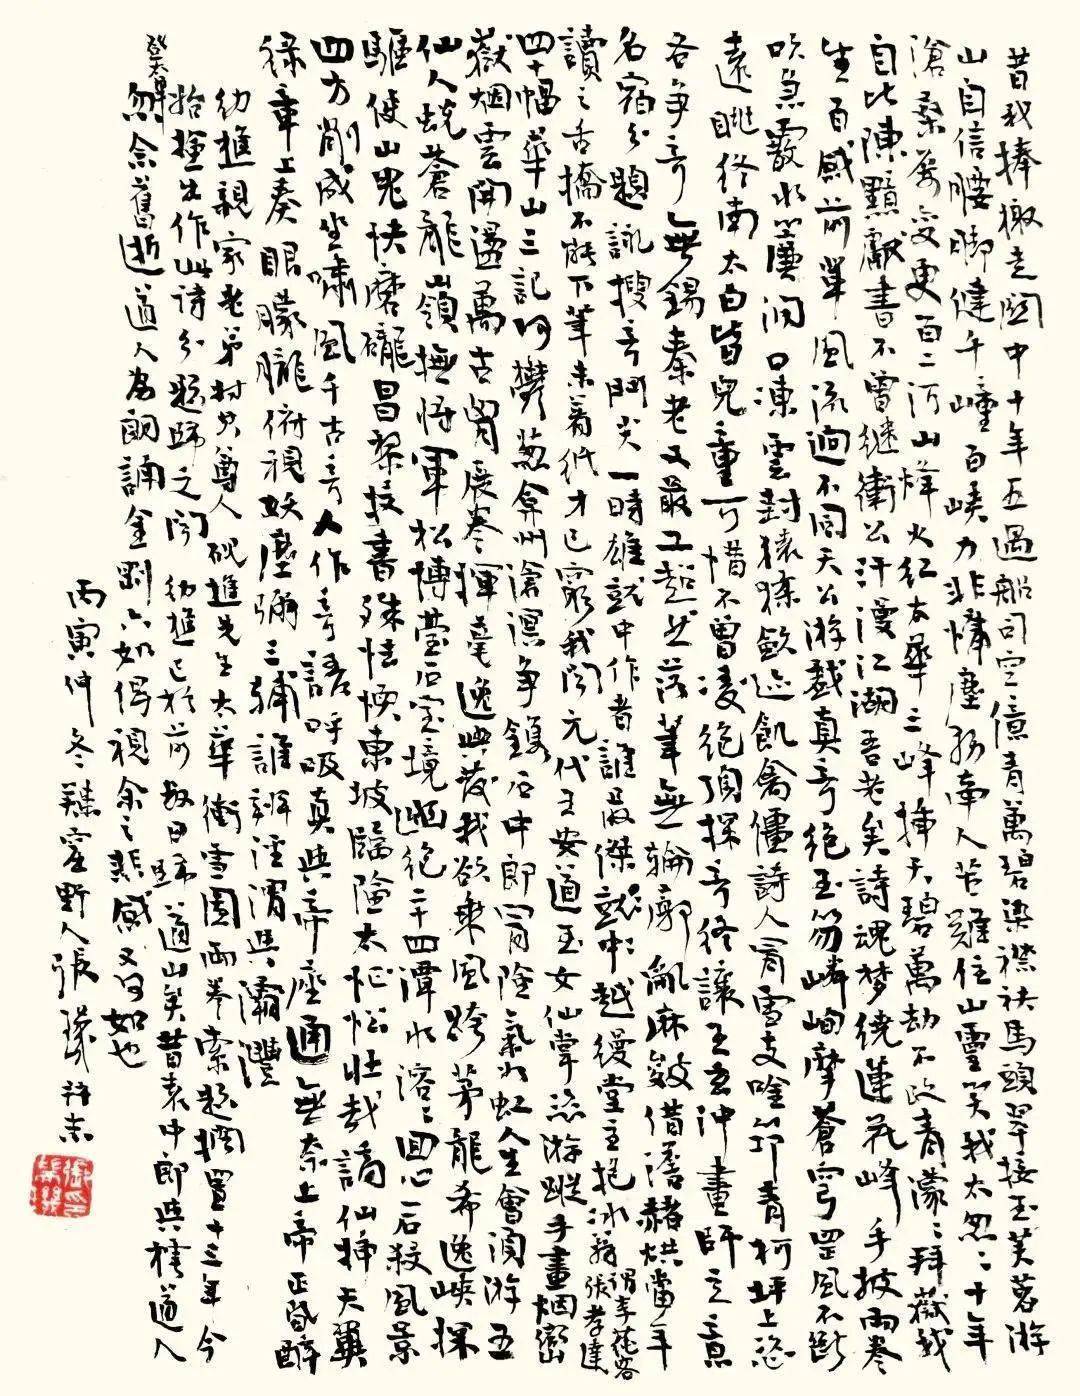 昔我捧檄走關中十年五過船司空億青萬碧染襟袂馬頭翠接玉芙蓉游
山自信腰腳健千嶂百峽力非慵塵勞南人苦難住山靈笑我太忽忽十年
滄桑萬變更百二河山烽火紅太華三峰插天碧萬劫不改青濛濛拜嶽我
自比陳黯獻書不曾繼衛公汗漫江湖吾老矣詩魂夢繞蓮花峰手披兩卷
生百感前輩風流迥不同天公游戲真奇絕玉笏嶙峋摩蒼穹罡風不斷
吹急霰水簾洞口凍雲封猿猱斂迹飢禽僵詩人冒雪支唫筇青柯坪上恣
遠眺終南太白皆兒童可惜不曾凌絕頂探奇終讓王安沖畫師立意
各爭奇無錫秦老又最工超超落筆無輪廓亂麻皴借澹赭烘當年
名宿分題詠搜奇鬥尖一時雄就中作者誰最傑就中越縵堂主抱冰翁謂李蒓客張孝達
讀之舌撟不能下筆未著紙才已窮我聞元代王安道玉女仙掌恣游蹤手畫烟巒
四十幅華山三記何鬱蔥弇州滄溟爭鋟石中郎冒險氣如虹人生會須游五
嶽烟雲開盪萬古胸展卷揮毫逸興發我欲乘風跨茅龍希逸峽探
仙人蛻蒼龍嶺撫將軍松博臺石室境幽絕二十四潭水溶溶回心一石殺風景
驅使山鬼快磨礲昌黎投書殊怯懦東坡臨險太忙怱壯哉謫仙插天翼
四方削成坐嘯風千古奇人作奇語呼吸真與帝座通無奈上帝正昏醉
綠章上奏眼朦朧俯視妖塵瀰三輔誰辨涇渭與灞灃
幼樵親家老弟封只尊人硯樵先生太華衝雪圖兩卷索題擱置十三年今
癸畢
拾捶出作此詩分題歸之聞幼樵已於前數日歸道山矣昔袁中郎與棲道人
忽念舊逝道人為朗誦金剛六如偈視余之悲感又何如也
丙寅仲冬 野人張 并志